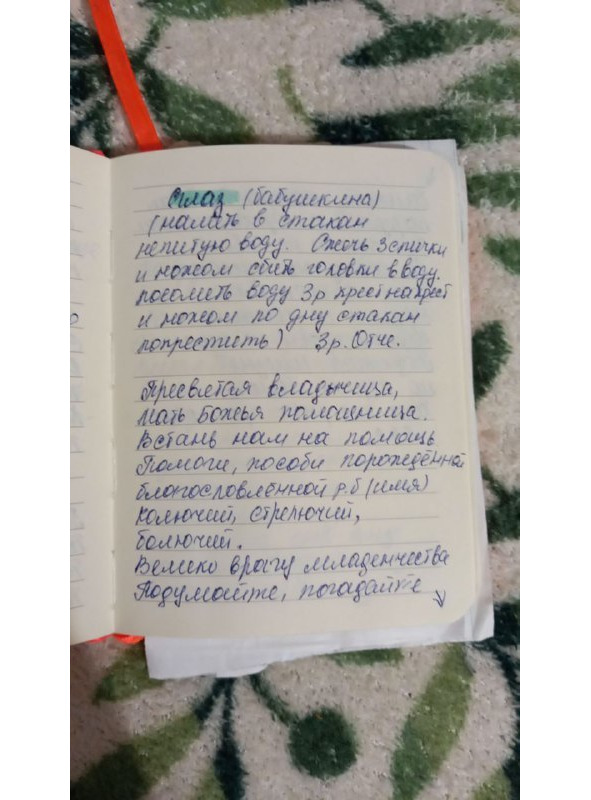 Сглаз (бабушкина)
(налить в стакан
непитую воду. Сжечь 3 спички
и ножом сбить головки в воду.
посолить воду 3р крест накрест
и ножом по дну стакан
попрестить) 3р. Отче.
Пресвятая владычица,
Мать Божья помощница.
Встань нам на помощь
Помоги, пособи порождённой
благословлённой р.б (имя)
Колючий, стрелючий,
болючий.
Велико врагу младенчества
Подумайте, погадайте